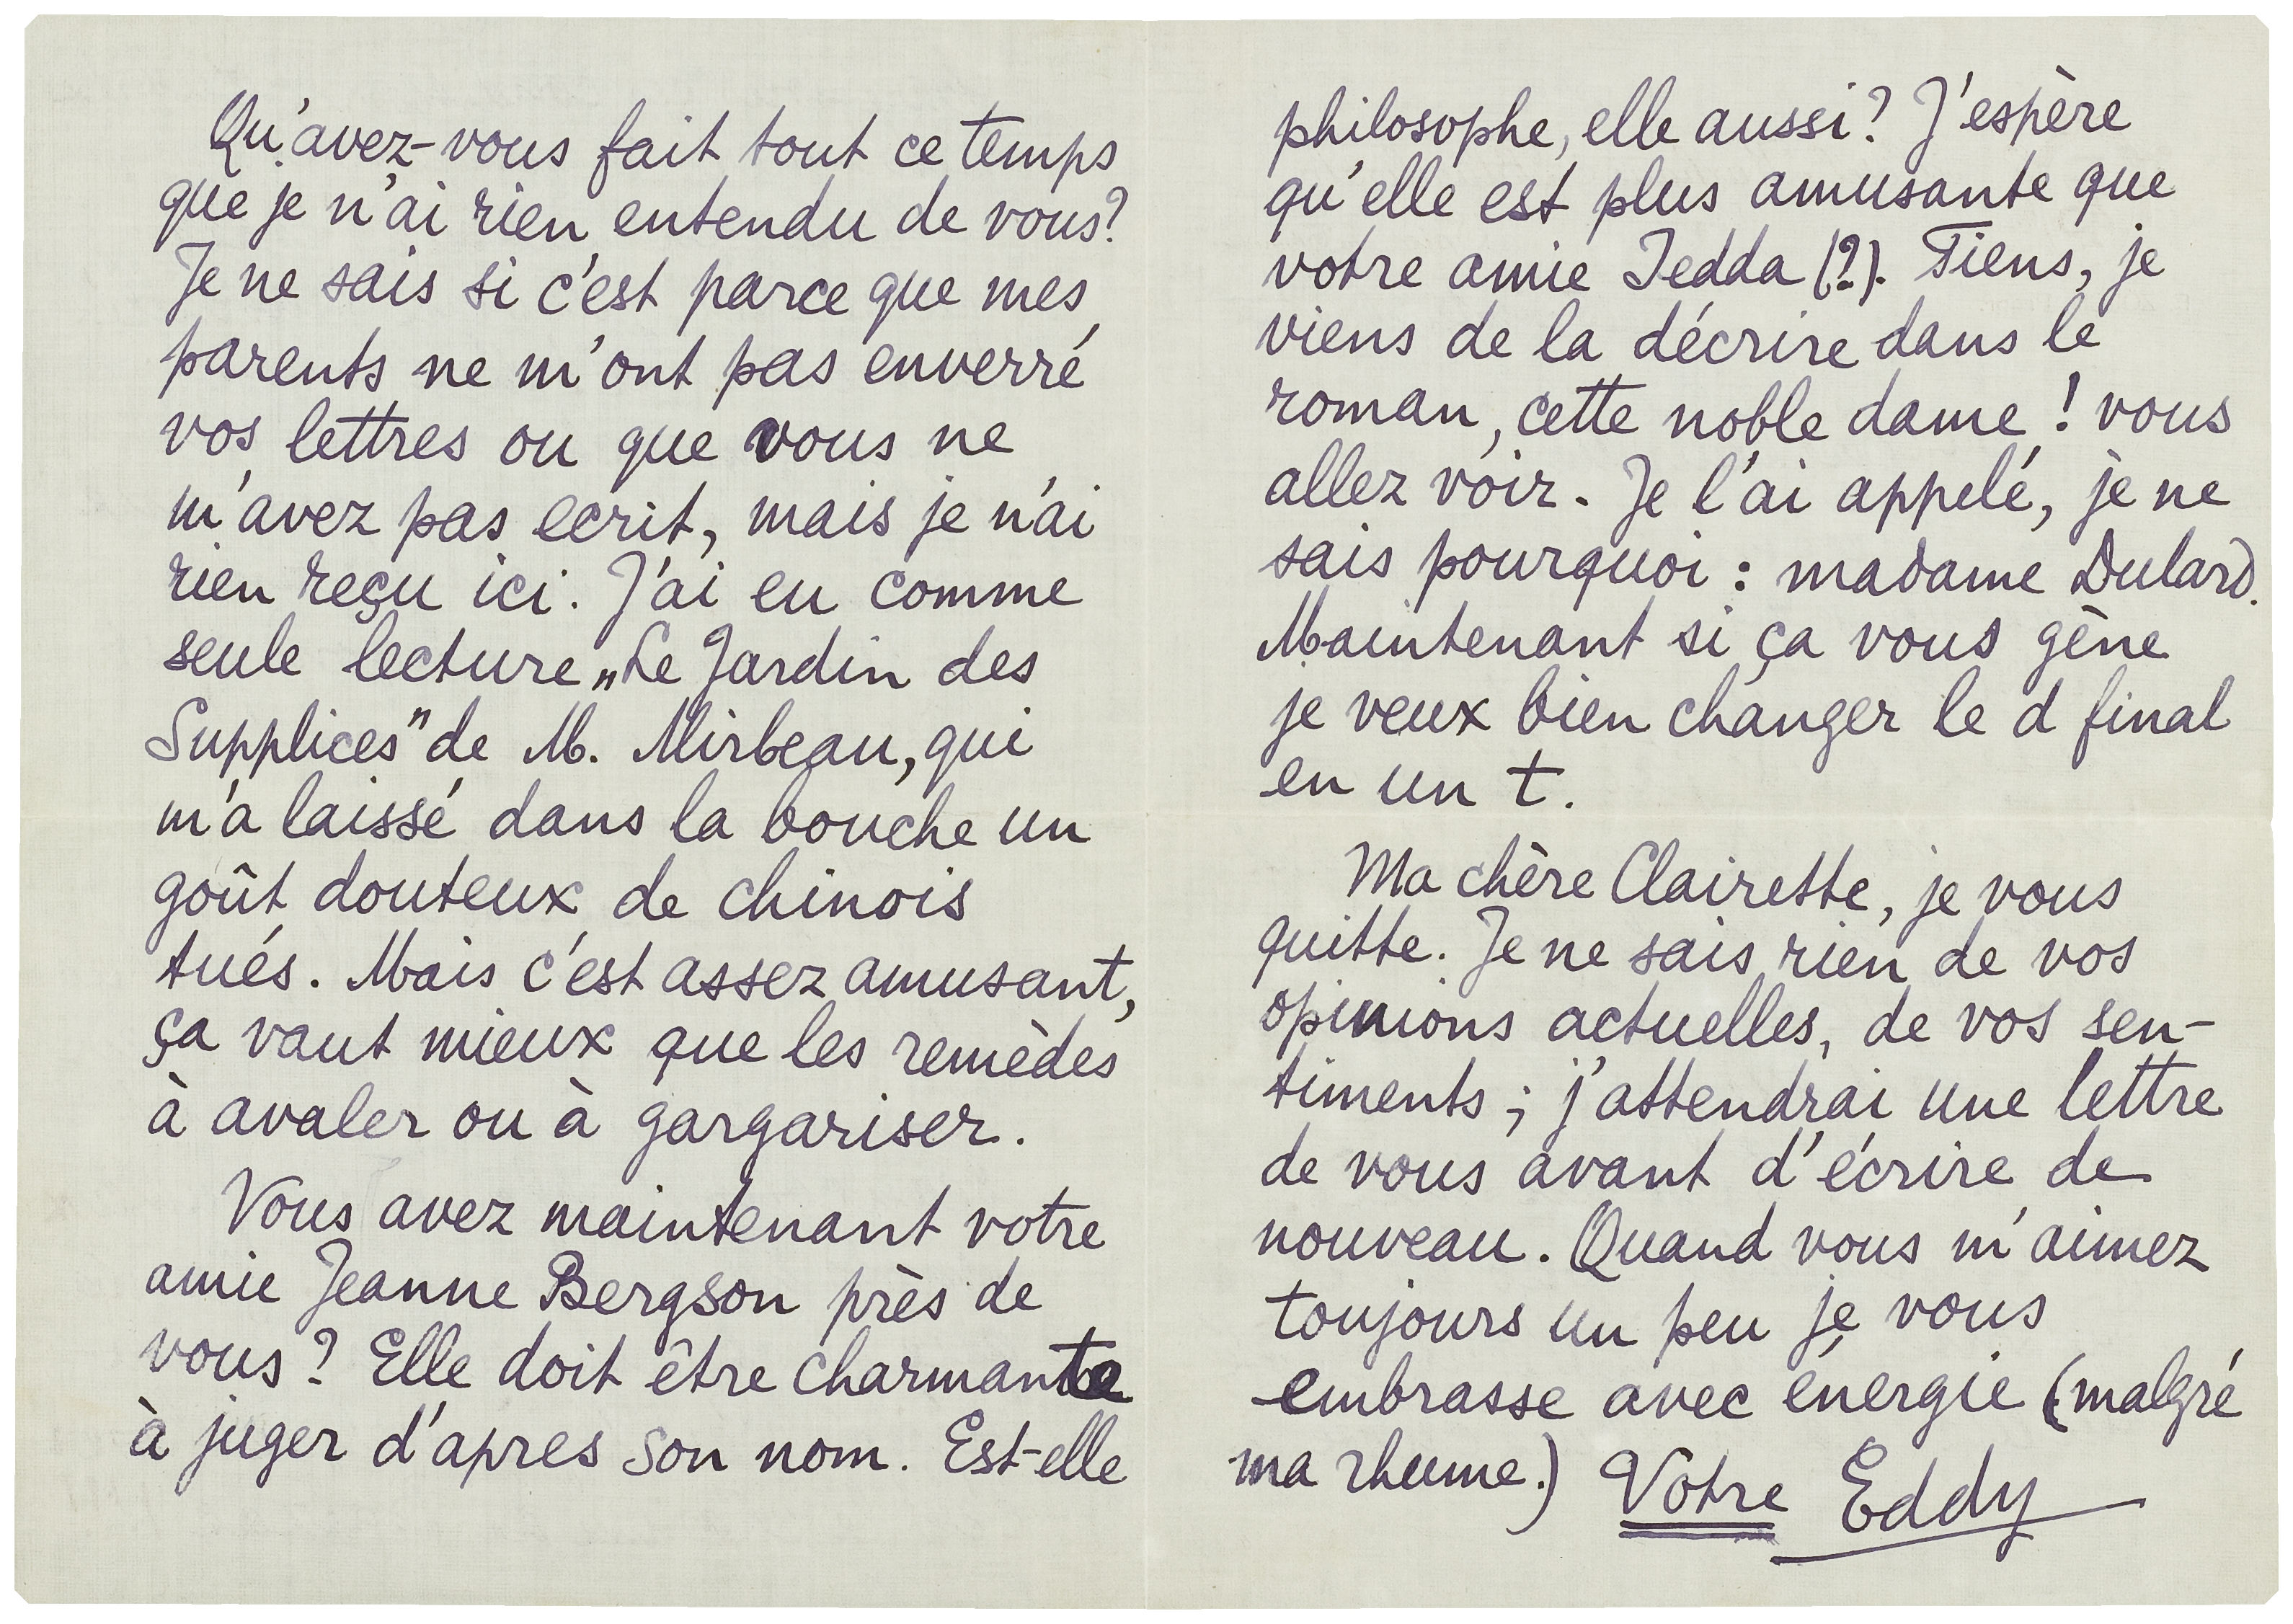 Qu'avez-vous fait tout ce temps
que je n'ai rien entendu de vous?
Je ne sais si c'est parce que mes
parents ne m'ont pas enverré
vos lettres ou que vous ne
m'avez pas ecrit, mais je n'ai
rien reçu ici. J'ai eu comme
seule lecture „Le Jardin des
Supplices" de M. Mirbeau, qui
m'a laissé dans la bouche un
goût douteux de chinois
tués. Mais c'est assez amusant,
ça vaut mieux que les remèdes
à avaler ou à gargariser.
Vous avez maintenant votre
amie Jeanne Bergson près de
vous? Elle doit être charmante
à juger d'apres son nom. Est-elle
philosophe, elle aussi? J'espère
qu'elle est plus amusante que
votre amie Tedda (?). Tiens, je
viens de la décrire dans le
roman, cette noble dame! vous
allez voir. Je l'ai appelé, je ne
sais pourquoi: madame Dulard.
Maintenant si ça vous gène
je veux bien changer le d final
en un t.
Ma chère Clairette, je vous
quitte. Je ne sais rien de vos
opinions actuelles, de vos sen-
timents; j'attendrai une lettre
de vous avant d'écrire de
nouveau. Quand vous m'aimez
toujours un peu je vous
embrasse avec énergie (malgré
ma rhume.) Votre Eddy